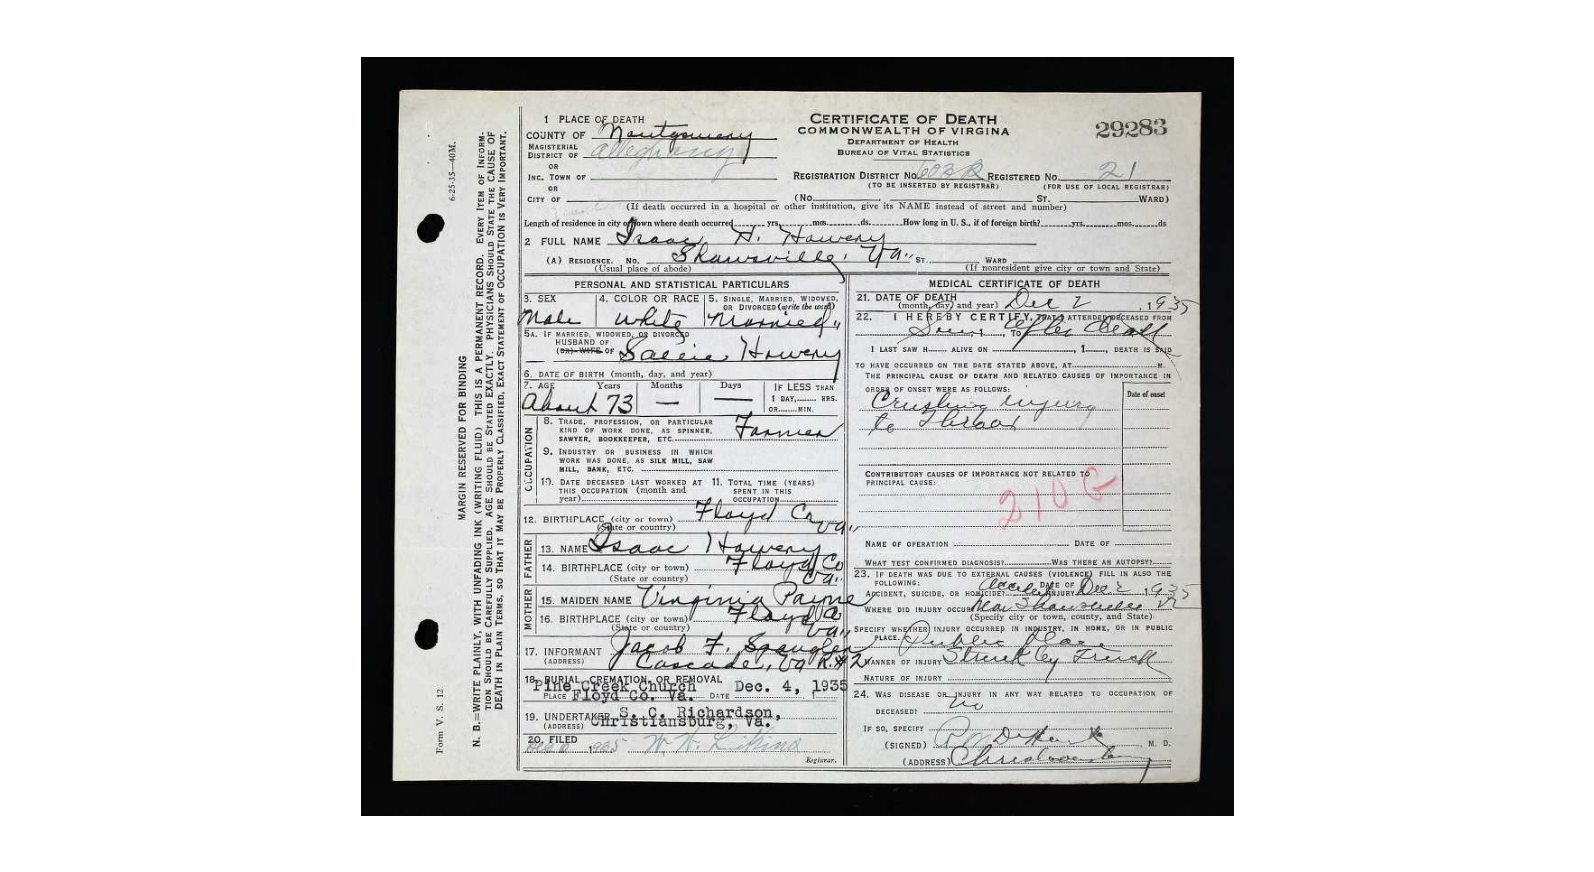 6-25-35—40M.
MARGIN RESERVED FOR BINDING
N. B.—WRITE PLAINLY, WITH UNFADING INK (WRITING FLUID) THIS IS A PERMANENT RECORD. EVERY ITEM OF INFORM-
TION SHOULD BE CAREFULLY SUPPLIED. AGE SHOULD BE STATED EXACTLY. PHYSICIANS SHOULD STATE THE CAUSE OF
DEATH IN PLAIN TERMS, SO THAT IT MAY BE PROPERLY CLASSIFIED. EXACT STATEMENT OF OCCUPATION IS VERY IMPORTANT.
Form V. S. 12
CERTIFICATE OF DEATH
COMMONWEALTH OF VIRGINIA
DEPARTMENT OF HEALTH
BUREAU OF VITAL STATISTICS
29283
1 PLACE OF DEATH
COUNTY OF Montgomery
MAGISTERIAL
DISTRICT OF Alleghany
OR
INC. TOWN OF
OR
CITY OF
REGISTRATION DISTRICT NO. REGISTERED NO. 21
(TO BE INSERTED BY REGISTRAR) (FOR USE OF LOCAL REGISTRAR)
(No. ST. WARD)
(If death occurred in a hospital or other institution, give its NAME instead of street and number)
Length of residence in city or town where death occurred yrs. mos. ds. How long in U. S., if of foreign birth? yrs. mos. ds
2 FULL NAME Isaac H. Howery
(A) RESIDENCE. No. Shawsville, Va. ST. WARD
(Usual place of abode) (If nonresident give city or town and State)
PERSONAL AND STATISTICAL PARTICULARS
3. SEX Male
4. COLOR OR RACE White
5. SINGLE, MARRIED, WIDOWED, OR DIVORCED (write the word) Married
5A. IF MARRIED, WIDOWED, OR DIVORCED
HUSBAND OF
(OR) WIFE OF Sallie Howery
6. DATE OF BIRTH (month, day, and year)
7. AGE Years Months Days IF LESS THAN
1 DAY, HRS.
OR MIN.
About 73 — —
OCCUPATION
8. TRADE, PROFESSION, OR PARTICULAR
KIND OF WORK DONE, AS SPINNER,
SAWYER, BOOKKEEPER, ETC. Farmer
9. INDUSTRY OR BUSINESS IN WHICH
WORK WAS DONE, AS SILK MILL, SAW
MILL, BANK, ETC.
10. DATE DECEASED LAST WORKED AT
THIS OCCUPATION (month and
year)
11. TOTAL TIME (YEARS)
SPENT IN THIS
OCCUPATION
12. BIRTHPLACE (city or town) Floyd Co
(State or country) Va.
FATHER
13. NAME Isaac Howery
14. BIRTHPLACE (city or town) Floyd Co
(State or country) Va.
MOTHER
15. MAIDEN NAME Virginia Payne
16. BIRTHPLACE (city or town) Floyd Co
(State or country) Va.
17. INFORMANT Jacob F. Spangler
(ADDRESS) Cascade, Va R.#2
18. BURIAL, CREMATION, OR REMOVAL
Pine Creek Church Dec. 4, 1935
PLACE Floyd Co. Va. DATE 1
19. UNDERTAKER S. C. Richardson,
(ADDRESS) Christiansburg, Va.
20. FILED 1935
Registrar.
MEDICAL CERTIFICATE OF DEATH
21. DATE OF DEATH
(month, day, and year) Dec 2, 1935
22. I HEREBY CERTIFY, THAT I ATTENDED DECEASED FROM
, 1 , TO after death
I LAST SAW H ALIVE ON , 1 , DEATH IS SAID
TO HAVE OCCURRED ON THE DATE STATED ABOVE, AT M.
THE PRINCIPAL CAUSE OF DEATH AND RELATED CAUSES OF IMPORTANCE IN
ORDER OF ONSET WERE AS FOLLOWS:
Date of onset
Crushing injury
to
CONTRIBUTORY CAUSES OF IMPORTANCE NOT RELATED TO
PRINCIPAL CAUSE:
210 G
NAME OF OPERATION DATE OF
WHAT TEST CONFIRMED DIAGNOSIS? WAS THERE AN AUTOPSY?
23. IF DEATH WAS DUE TO EXTERNAL CAUSES (VIOLENCE) FILL IN ALSO THE
FOLLOWING:
ACCIDENT, SUICIDE, OR HOMICIDE? DATE OF INJURY Dec 2, 1935
WHERE DID INJURY OCCUR? Near Shawsville Va
(Specify city or town, county, and State)
SPECIFY WHETHER INJURY OCCURRED IN INDUSTRY, IN HOME, OR IN PUBLIC
PLACE. Public Place
MANNER OF INJURY Struck by Truck
NATURE OF INJURY
24. WAS DISEASE OR INJURY IN ANY WAY RELATED TO OCCUPATION OF
DECEASED? No
IF SO, SPECIFY
(SIGNED) M. D.
(ADDRESS) Christiansburg